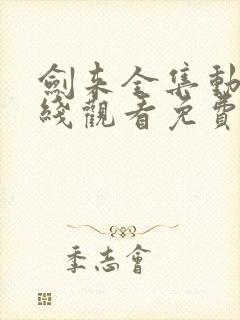 劍来全集動
綫觀看免費
季志會